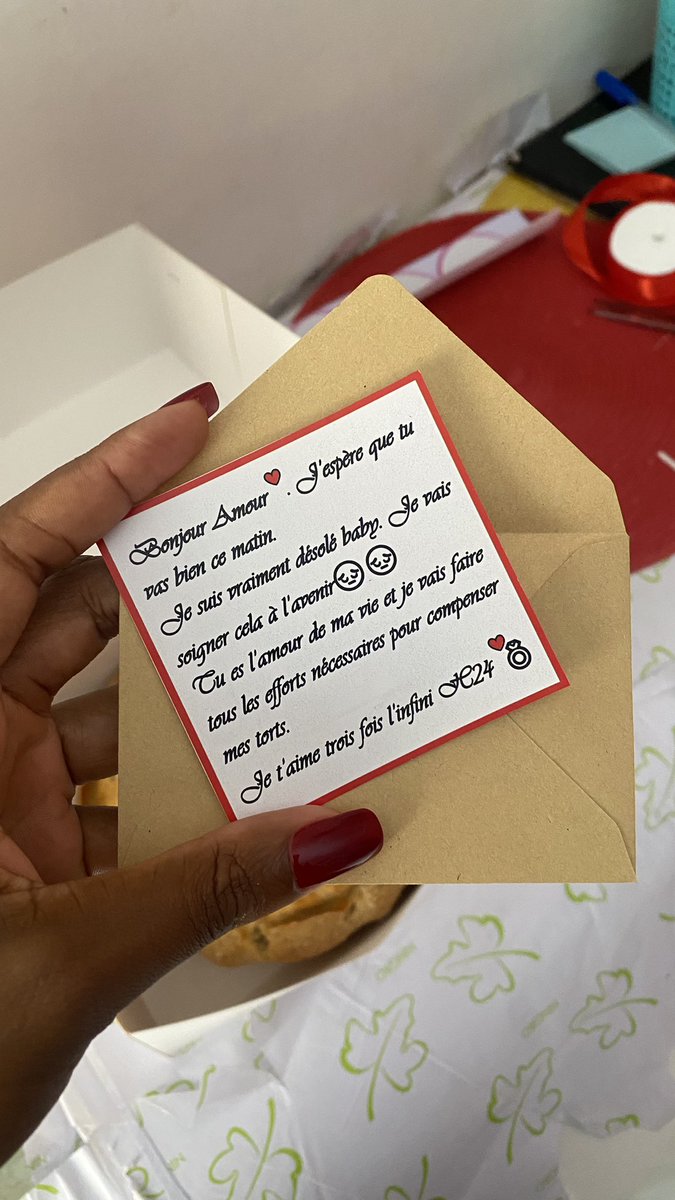 Bonjour Amour❤️. J'espère que tu
vas bien ce matin.
Je suis vraiment désolé baby. Je vais
soigner cela à l'avenir😔😔
Tu es l'amour de ma vie et je vais faire
tous les efforts nécessaires pour compenser
mes torts.
Je t'aime trois fois l'infini H24❤️💍